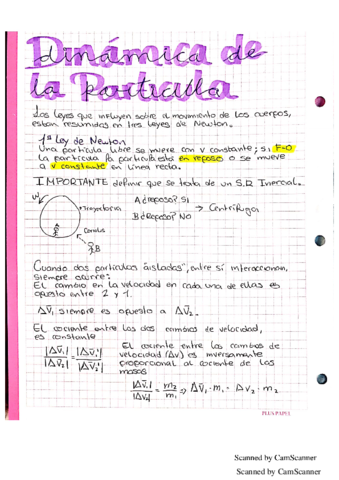 Dinámica de
la Partícula
Las leyes que influyen sobre el movimiento de los cuerpos,
están resumidas en tres leyes de Newton.
1ª Ley de Newton
Una partícula libre se mueve con v constante; si F=0
la partícula la partícula está en reposo o se mueve
a v constante en línea recta.
IMPORTANTE definir que se trata de un S.R Inercial.
W
A ¿Reposo? Sí
Trayectoria
→ Centrífuga
B ¿Reposo? NO
B
Cuando dos partículas "aisladas", entre sí interaccionan,
siempre ocurre:
El cambio en la velocidad en cada una de ellas es
opuesto entre 2 y 1.
Δv̄₁ siempre es opuesto a Δv̄₂.
El cociente entre los dos cambios de velocidad,
es constante
|Δv̄₁| / |Δv̄₂| = |Δv̄₁'| / |Δv̄₂'|
El cociente entre los cambios de
velocidad (Δv) es inversamente
proporcional al cociente de las
masas
|Δv̄₁| / |Δv̄₂| = m₂ / m₁ ⇒ Δv̄₁ · m₁ = Δv₂ · m₂
PLUS PAPEL
Scanned by CamScanner
Scanned by CamScanner